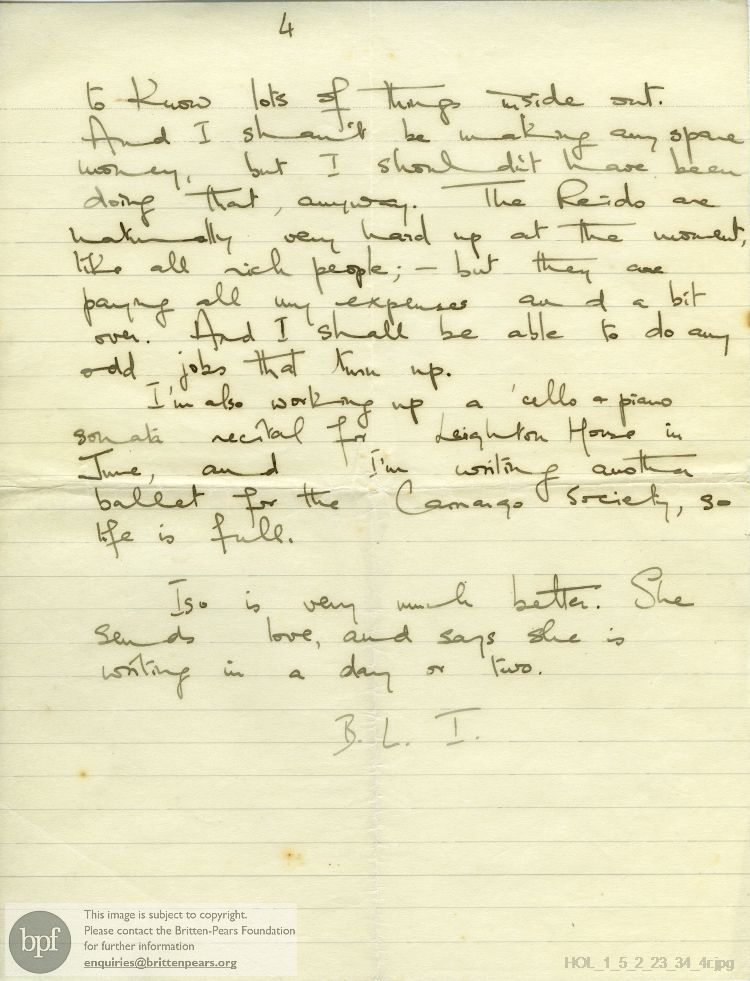 4
to know lots of things inside out.
And I shan't be making any spare
money, but I shouldn't have been
doing that, anyway. The Reids are
naturally very hard up at the moment,
like all rich people; – but they are
paying all my expenses and a bit
over. And I shall be able to do any
odd jobs that turn up.
I'm also working up a 'cello + piano
sonata recital for Leighton House in
June, and I'm writing another
ballet for the Camargo Society, so
life is full.
Iso is very much better. She
sends love, and says she is
writing in a day or two.
B. L. I.
bpf
This image is subject to copyright.
Please contact the Britten-Pears Foundation
for further information
enquiries@brittenpears.org
HOL_1_5_2_23_34_4r.jpg